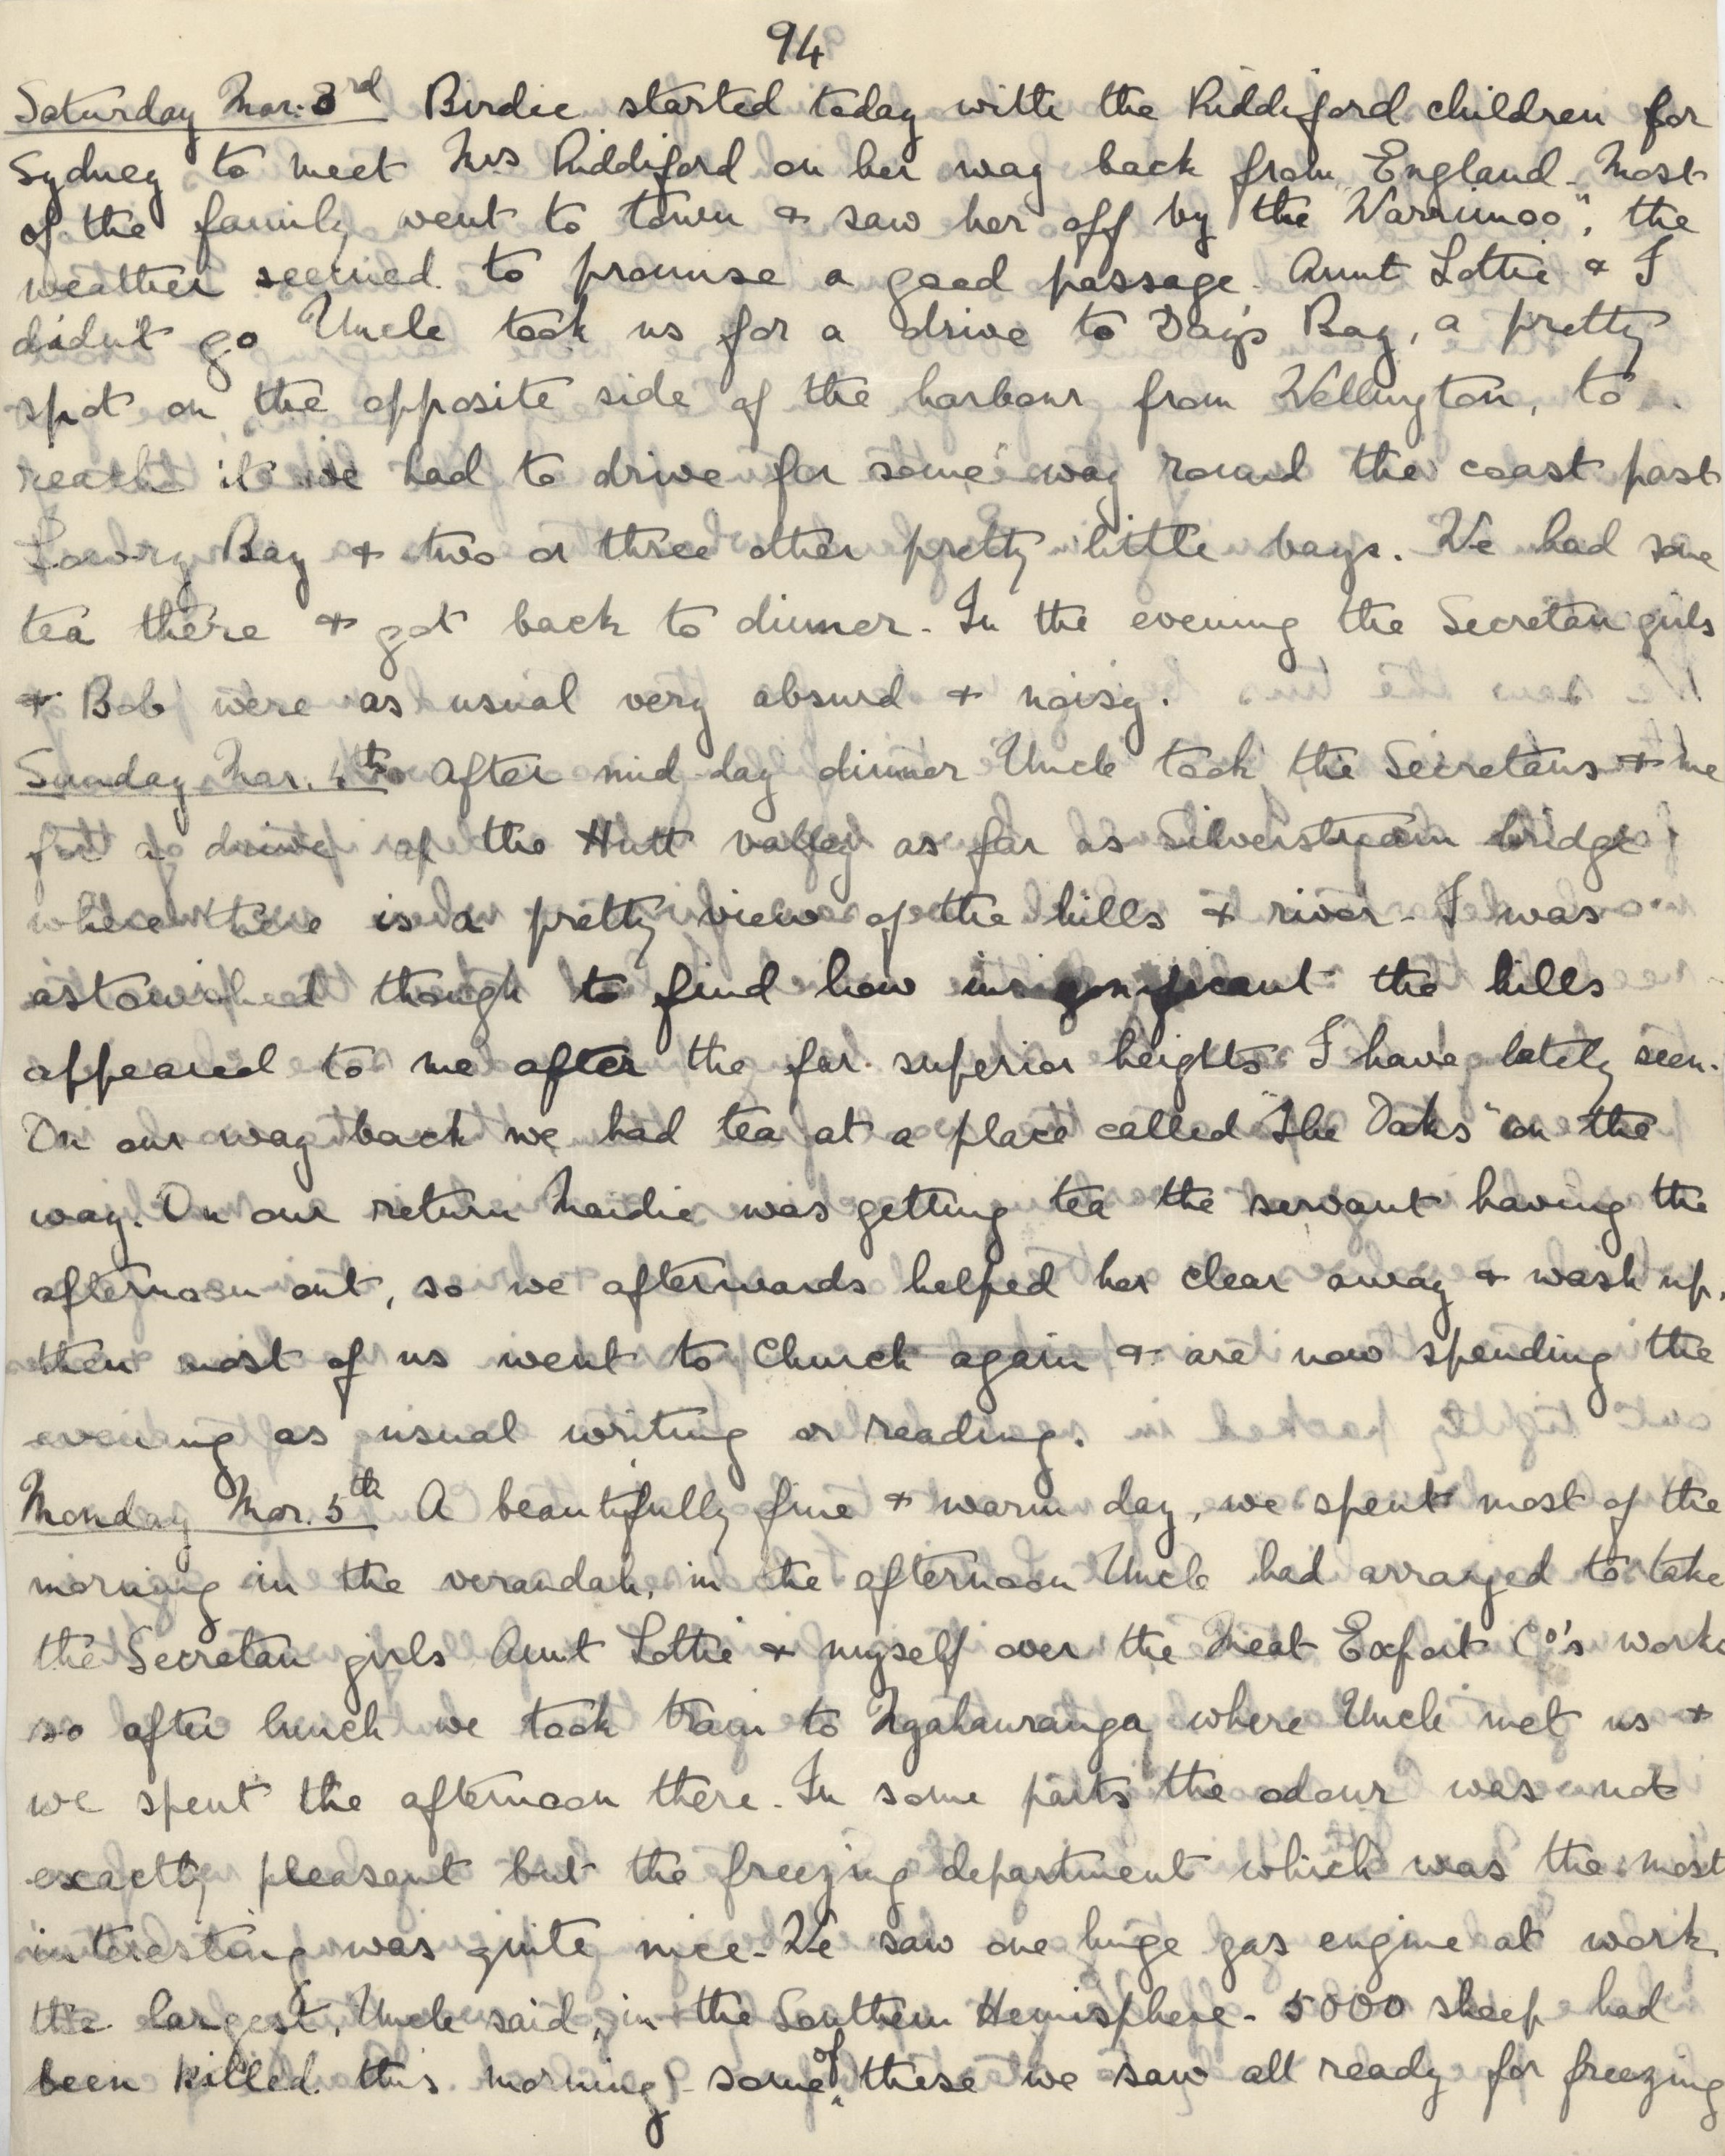 94
Saturday Mar. 3rd Birdie started today with the Riddiford children for
Sydney to meet Mrs Riddiford on her way back from England - Most
of the family went to town & saw her off by the "Warrimoo", the
weather seemed to promise a good passage. Aunt Lottie & I
didn't go Uncle took us for a drive to Day's Bay, a pretty
spot on the opposite side of the harbour from Wellington, to
reach it we had to drive for some way round the coast past
Lowry Bay & two or three other pretty little bays. We had some
tea there & got back to dinner - In the evening the Secretan girls
& Bob were as usual very absurd & noisy.
Sunday Mar. 4th After mid-day dinner Uncle took the Secretans & me
for a drive up the Hutt valley as far as Silverstream bridge
where there is a pretty view of the hills & river - I was
astonished though to find how insignificant the hills
appeared to me after the far superior heights I have lately seen.
On our way back we had tea at a place called "The Oaks" on the
way. On our return Maidie was getting tea the servant having the
afternoon out, so we afterwards helped her clear away & wash up,
then most of us went to Church again & are now spending the
evening as usual writing or reading.
Monday Mar. 5th A beautifully fine & warm day, we spent most of the
morning in the verandah, in the afternoon Uncle had arranged to take
the Secretan girls Aunt Lottie & myself over the Meat Export Co's works
so after lunch we took train to Ngahauranga where Uncle met us &
we spent the afternoon there. In some parts the odour was not
exactly pleasant but the freezing department which was the most
interesting was quite nice - We saw one huge gas engine at work
the largest, Uncle said, in the Southern Hemisphere - 5000 sheep had
been killed this morning - some of these we saw all ready for freezing